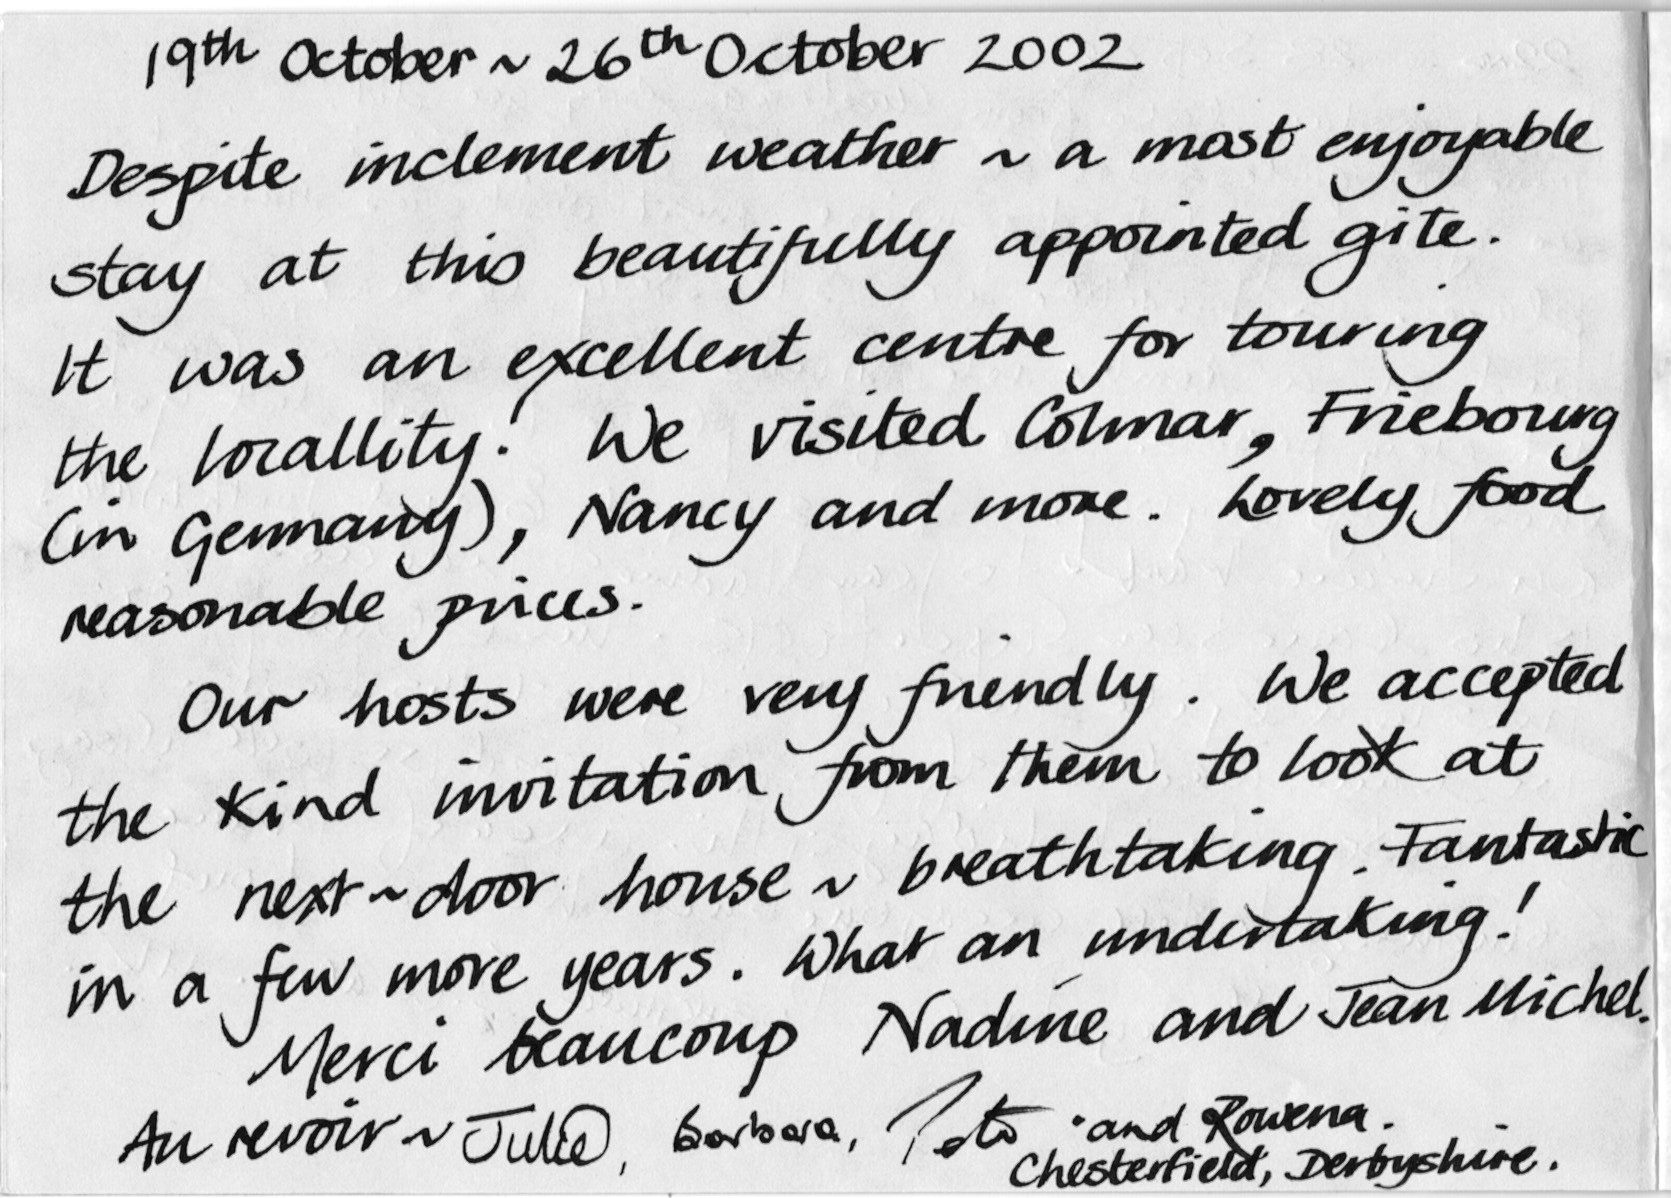 19th October ~ 26th October 2002
Despite inclement weather ~ a most enjoyable
stay at this beautifully appointed gite.
It was an excellent centre for touring
the locallity! We visited Colmar, Friebourg
(in Germany), Nancy and more. Lovely food
reasonable prices.
Our hosts were very friendly. We accepted
the kind invitation from them to look at
the next~door house ~ breathtaking. Fantastic
in a few more years. What an undertaking!
Merci beaucoup Nadine and Jean Michel.
Au revoir ~ Julie, barbara, and Rowena.
Chesterfield, Derbyshire.